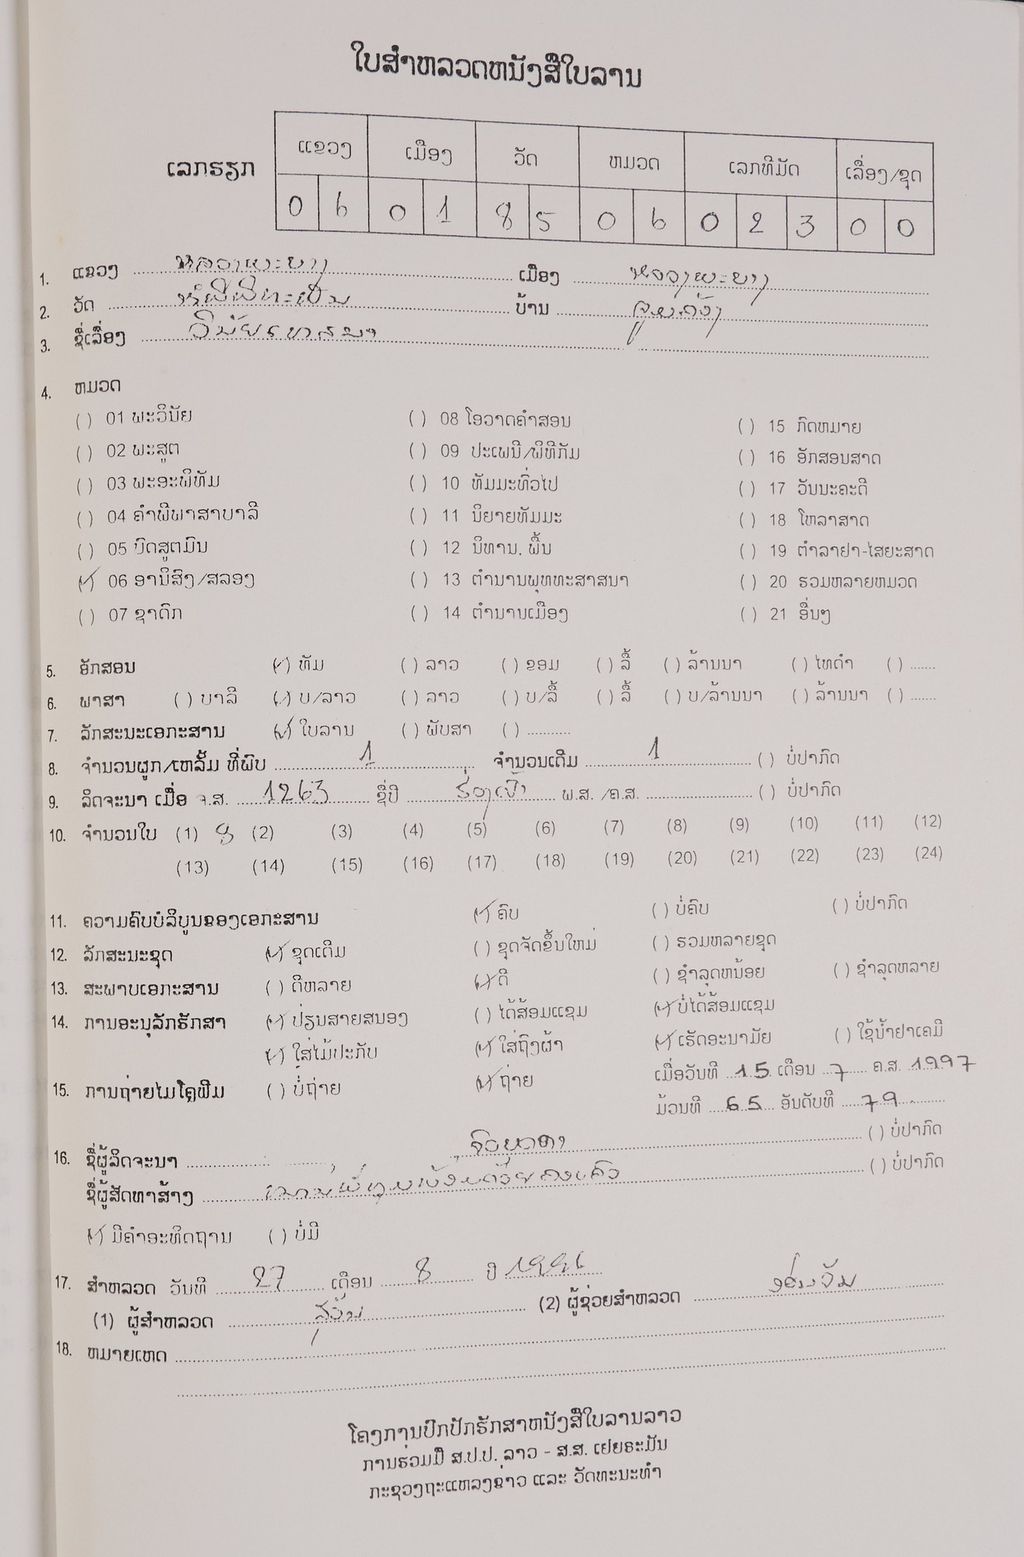 ໃບສຳຫລວດຫນັງສືໃບລານ
ເລກຮຽກ
ແຂວງ ເມືອງ ວັດ ຫມວດ ເລກທີມັດ ເລື່ອງ/ຊຸດ
0 6 0 1 8 5 0 6 0 2 3 0 0
1. ແຂວງ ຫລວງພະບາງ ເມືອງ ຫລວງພະບາງ
2. ວັດ ບ້ານ
3. ຊື່ເລື່ອງ
4. ຫມວດ
( ) 01 ພະວິນັຍ ( ) 08 ໂອວາດຄຳສອນ ( ) 15 ກົດຫມາຍ
( ) 02 ພະສູດ ( ) 09 ປະເພນີ/ພິທີກັມ ( ) 16 ອັກສອນສາດ
( ) 03 ພະອະພິທັມ ( ) 10 ທັມມະທົ່ວໄປ ( ) 17 ວັນນະຄະດີ
( ) 04 ຄຳພີພາສາບາລີ ( ) 11 ນິຍາຍທັມມະ ( ) 18 ໂຫລາສາດ
( ) 05 ບົດສູດມົນ ( ) 12 ນິທານ, ພື້ນ ( ) 19 ຕຳລາຢາ-ໄສຍະສາດ
(✓) 06 ອານິສົງ/ສລອງ ( ) 13 ຕຳນານພຸທທະສາສນາ ( ) 20 ຮວມຫລາຍຫມວດ
( ) 07 ຊາດົກ ( ) 14 ຕຳນານເມືອງ ( ) 21 ອື່ນໆ
5. ອັກສອນ (✓) ທັມ ( ) ລາວ ( ) ຂອມ ( ) ລື້ ( ) ລ້ານນາ ( ) ໄທດຳ ( ) ......
6. ພາສາ ( ) ບາລີ (✓) ບ/ລາວ ( ) ລາວ ( ) ບ/ລື້ ( ) ລື້ ( ) ບ/ລ້ານນາ ( ) ລ້ານນາ ( ) ......
7. ລັກສະນະເອກະສານ (✓) ໃບລານ ( ) ພັບສາ ( ) ..........
8. ຈຳນວນຜູກ/ເຫລັ້ມ ທີ່ພົບ 1 ຈຳນວນເດີມ 1 ( ) ບໍ່ປາກົດ
9. ລິດຈະນາ ເມື່ອ ຈ.ສ. 1263 ຊື່ປີ ຮ້ວງເປົ້າ ພ.ສ. /ຄ.ສ. ( ) ບໍ່ປາກົດ
10. ຈຳນວນໃບ (1) 8 (2) (3) (4) (5) (6) (7) (8) (9) (10) (11) (12)
(13) (14) (15) (16) (17) (18) (19) (20) (21) (22) (23) (24)
11. ຄວາມຄົບບໍລິບູນຂອງເອກະສານ (✓) ຄົບ ( ) ບໍ່ຄົບ ( ) ບໍ່ປາກົດ
12. ລັກສະນະຊຸດ (✓) ຊຸດເດີມ ( ) ຊຸດຈັດຂຶ້ນໃຫມ່ ( ) ຮວມຫລາຍຊຸດ
13. ສະພາບເອກະສານ ( ) ດີຫລາຍ (✓) ດີ ( ) ຊຳລຸດຫນ້ອຍ ( ) ຊຳລຸດຫລາຍ
14. ການອະນຸລັກຮັກສາ (✓) ປ່ຽນສາຍສນອງ ( ) ໄດ້ສ້ອມແຊມ (✓) ບໍ່ໄດ້ສ້ອມແຊມ
(✓) ໃສ່ໄມ້ປະກັບ (✓) ໃສ່ຖົງຜ້າ (✓) ເຮັດອະນາມັຍ ( ) ໃຊ້ນ້ຳຢາເຄມີ
15. ການຖ່າຍໄມໂຄຼຟີມ ( ) ບໍ່ຖ່າຍ (✓) ຖ່າຍ ເມື່ອວັນທີ 15 ເດືອນ 7 ຄ.ສ. 1997
ມ້ວນທີ 65 ອັນດັບທີ 79
16. ຊື່ຜູ້ລິດຈະນາ ( ) ບໍ່ປາກົດ
ຊື່ຜູ້ສັດທາສ້າງ ( ) ບໍ່ປາກົດ
(✓) ມີຄຳອະທິດຖານ ( ) ບໍ່ມີ
17. ສຳຫລວດ ວັນທີ 27 ເດືອນ 8 ປີ 1996
(1) ຜູ້ສຳຫລວດ (2) ຜູ້ຊ່ວຍສຳຫລວດ
18. ຫມາຍເຫດ
ໂຄງການປົກປັກຮັກສາຫນັງສືໃບລານລາວ
ການຮ່ວມມື ສ.ປ.ປ. ລາວ - ສ.ສ. ເຢຍຣະມັນ
ກະຊວງຖະແຫລງຂ່າວ ແລະ ວັດທະນະທຳ